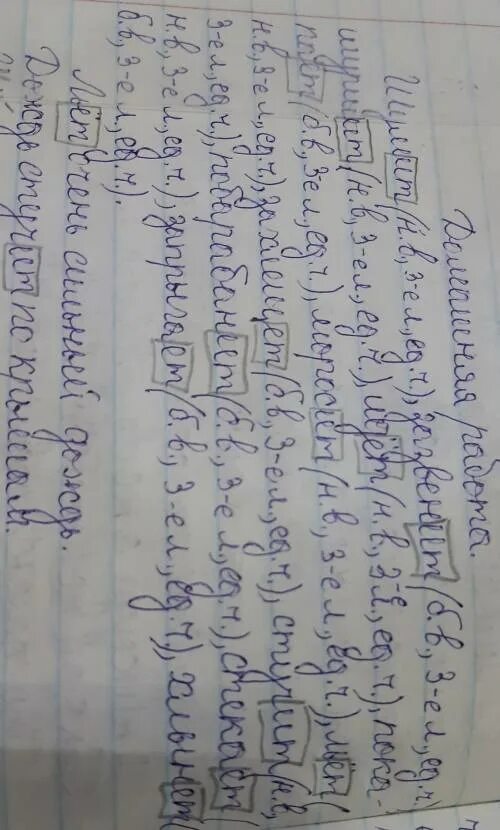 Домашняя работа.
Шумит (н.в, 3-е л, ед.ч), зазвенит (б.в, 3-е л, ед.ч
шумит (н.в, 3-е л, ед.ч.) идёт (н.в, 3-е л, ед.ч), пока-
пает (б.в, 3-е л, ед.ч.), моросит (н.в, 3-е л, ед.ч.), льёт (
н.в, 3-е л, ед.ч), захлещет (б.в, 3-е л, ед.ч.), стучит (н.в,
3-е л, ед.ч), побарабанит (б.в., 3-е л, ед.ч), стекает (
н.в, 3-е л, ед.ч), запрыгает (б.в., 3-е л, ед.ч), хлынет (
б.в, 3-е л, ед.ч).
Льёт очень сильный дождь.
Дождь стучит по крышам.